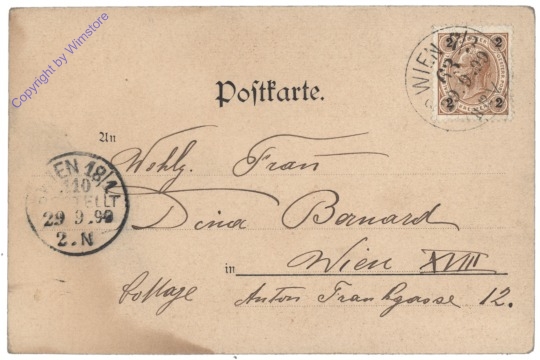 Copyright by Wimstore
WIEN
2 2
2 2
Postkarte.
An
Wohlg. Frau
WIEN 18/1
110
BESTELLT
29 9.99
2.N
Dina Bernard
in Wien XVIII
Cottage Anton Frankgasse 12.